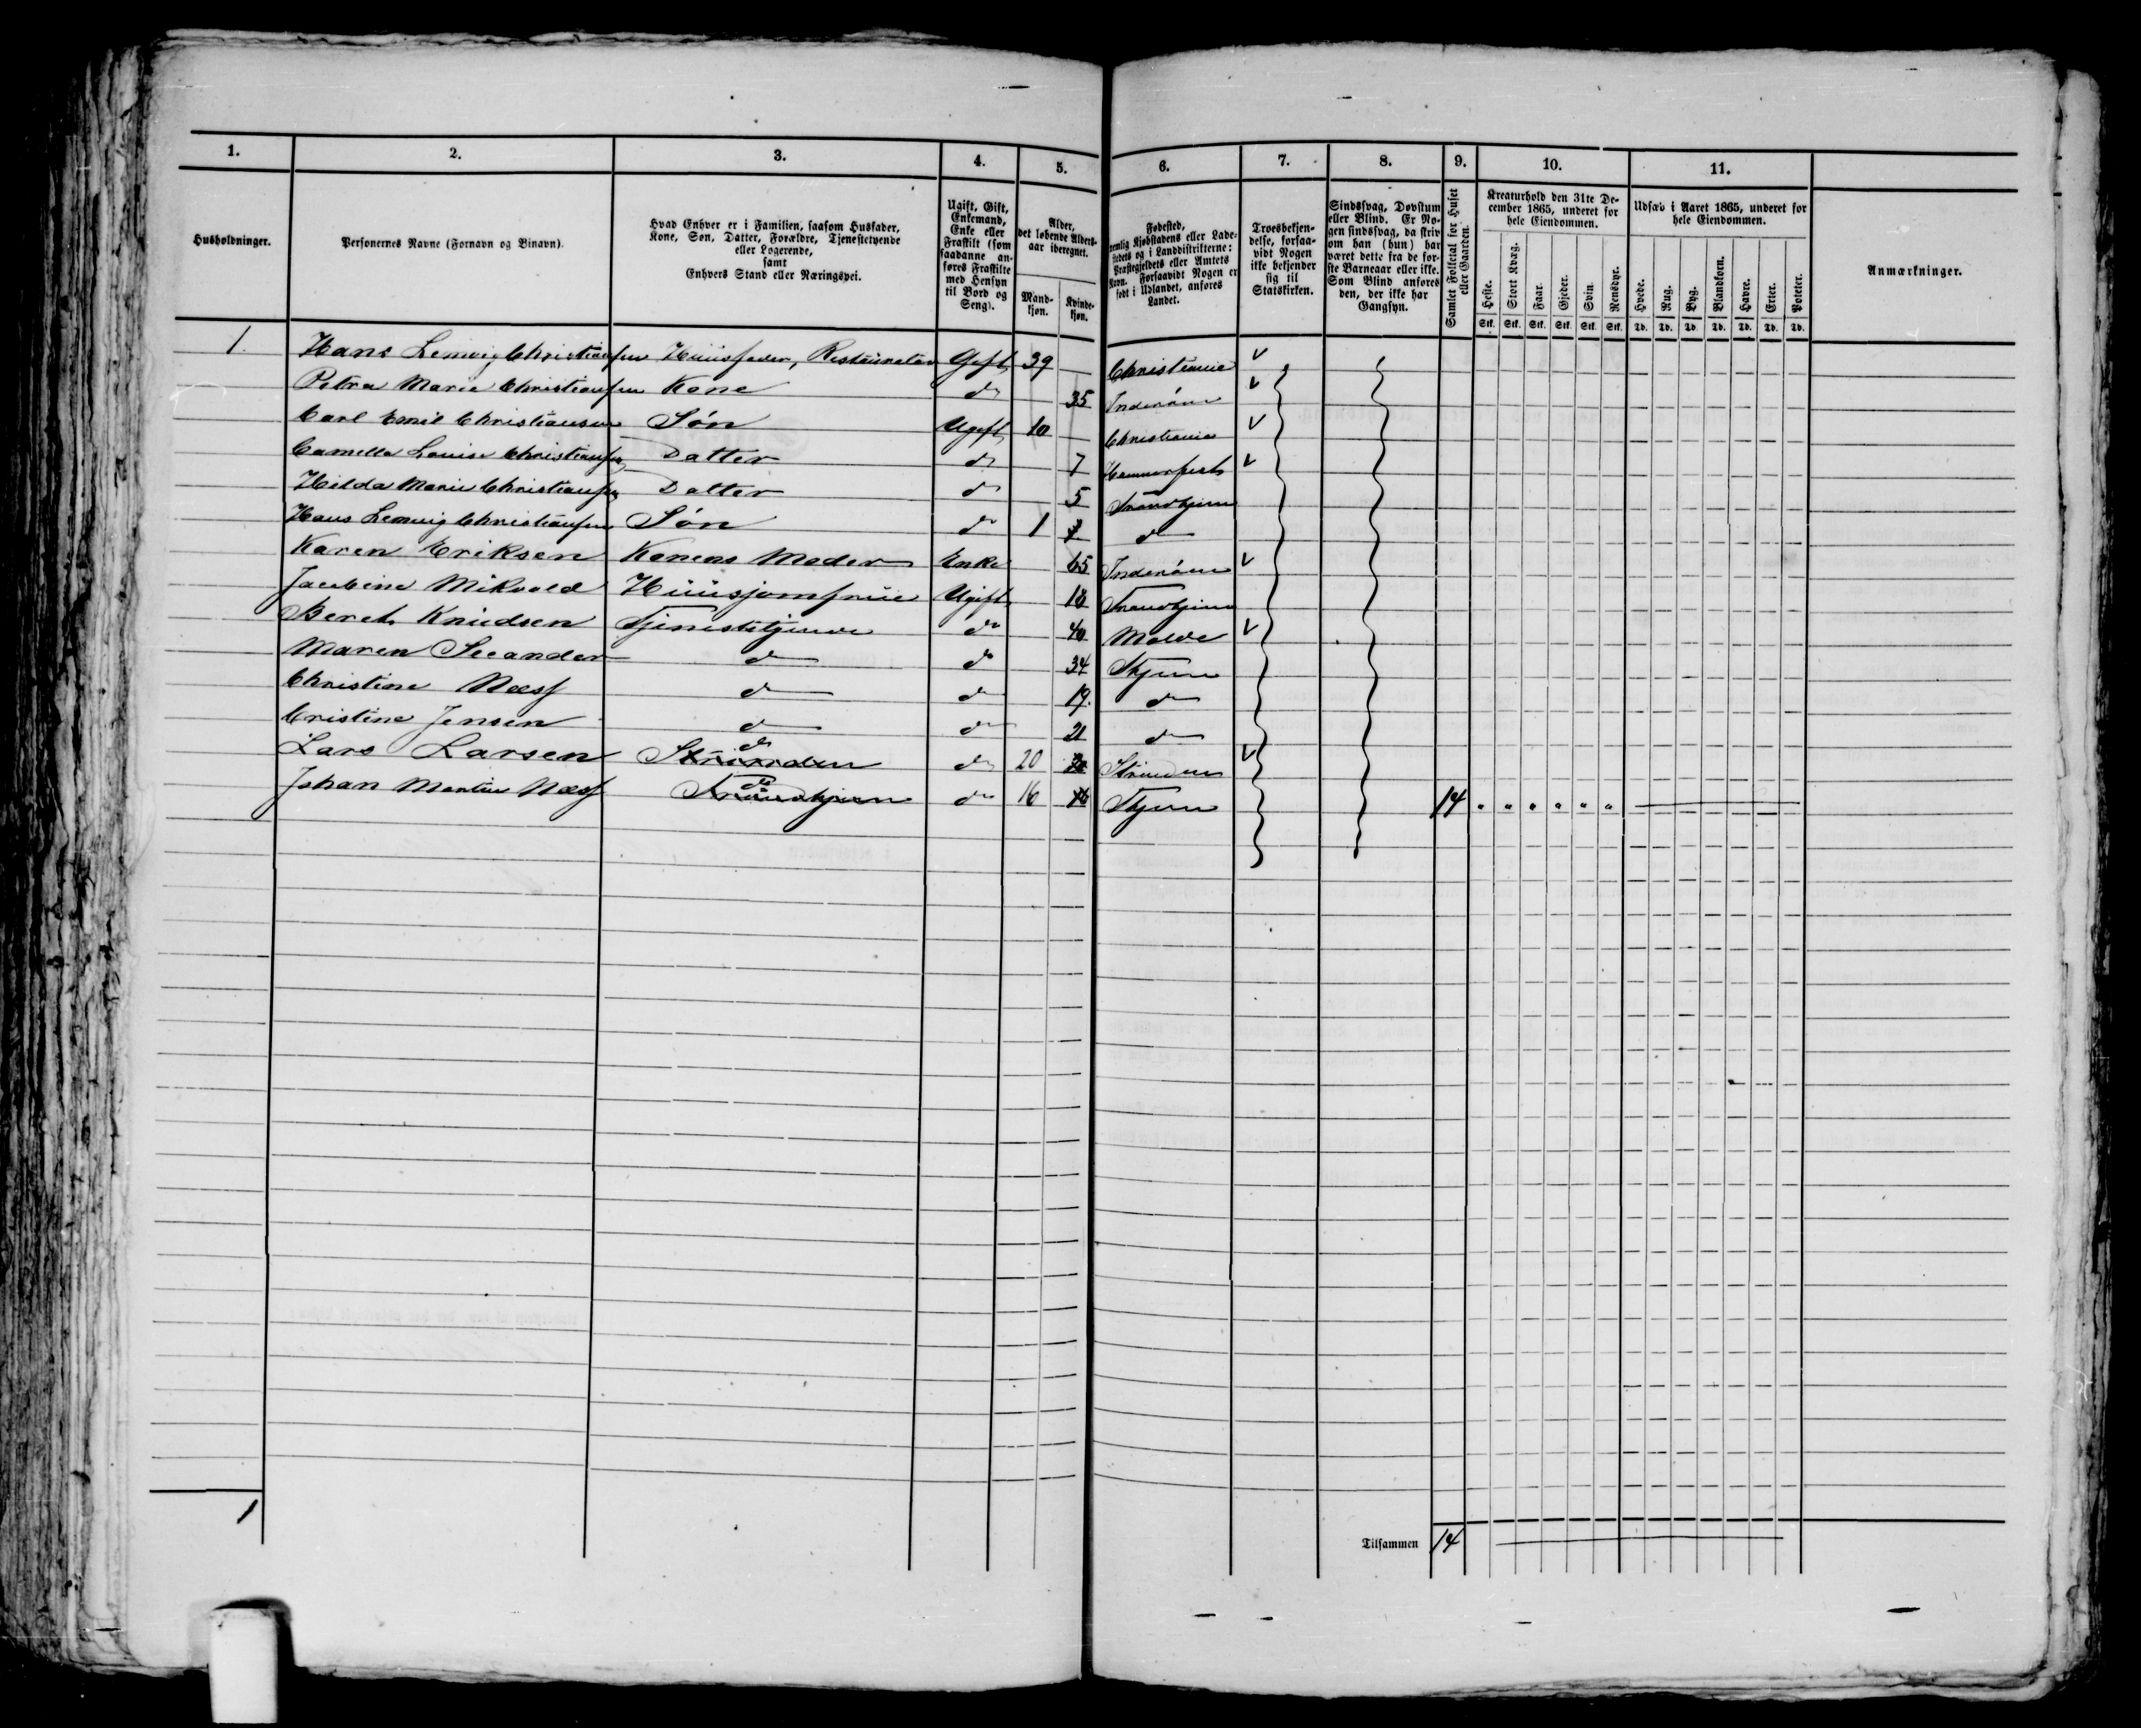 1. 2. 3. 4. 5. 6. 7. 8. 9. 10. 11.
Husholdninger.
Personernes Navne (Fornavn og Binavn).
Hvad Enhver er i Familien, saasom Husfader,
Kone, Søn, Datter, Forældre, Tjenestetyende
eller Logerende,
samt
Enhvers Stand eller Næringsvei.
Ugift, Gift,
Enkemand,
Enke eller
Fraskilt (som
saadanne an-
føres Fraskilte
med Hensyn
til Bord og
Seng).
Alder,
det løbende Alders-
aar iberegnet.
Mand-
kjøn.
Kvinde-
kjøn.
Fødested,
nemlig Kjøbstadens eller Lade-
stedets og i Landdistrikterne:
Præstegjeldets eller Amtets
Navn. Forsaavidt Nogen er
født i Udlandet, anføres
Landet.
Troesbekjen-
delse, forsaa-
vidt Nogen
ikke bekjender
sig til
Statskirken.
Sindssvag, Døvstum
eller Blind. Er No-
gen sindssvag, da skriv
om han (hun) har
været dette fra de før-
ste Barneaar eller ikke.
Som Blind anføres
den, der ikke har
Gangsyn.
Samlet Folketal for Huset
eller Gaarden.
Kreaturhold den 31te De-
cember 1865, underet for
hele Eiendommen.
Heste. Stort Kvæg. Faar. Gjeder. Svin. Rensdyr.
Stk. Stk. Stk. Stk. Stk. Stk.
Udsæd i Aaret 1865, underet for
hele Eiendommen.
Hvede. Rug. Byg. Blandkorn. Havre. Erter. Poteter.
Td. Td. Td. Td. Td. Td. Td.
Anmærkninger.
1. Hans Lemvig Christiansen Huusfader, Restauratør Gift 39 Christiania
Petra Marie Christiansen Kone do 35 Inderøen
Carl Emil Christiansen Søn Ugift 10 Christiania
Camella Louise Christiansen Datter do 7 Hammerfest
Hilda Marie Christiansen Datter do 5 Trondhjem
Hans Lemvig Christiansen Søn do 1 1 do
Karen Eriksen Konens Moder Enke 65 Inderøen
Jacobine Mikvold Huusjomfrue Ugift 18 Trondhjem
Beret Knudsen Tjenestetjende do 40 Molde
Maren Seeander do do 34 Thjem
Christine Næss do do 19. do
Cristine Jensen do do 21 do
Lars Larsen Strinden do do 20 20 Strinden
Johan Martin Næss Trondhjem do do 16 16 Thjem 14 " " " " " "
1
Tilsammen 14